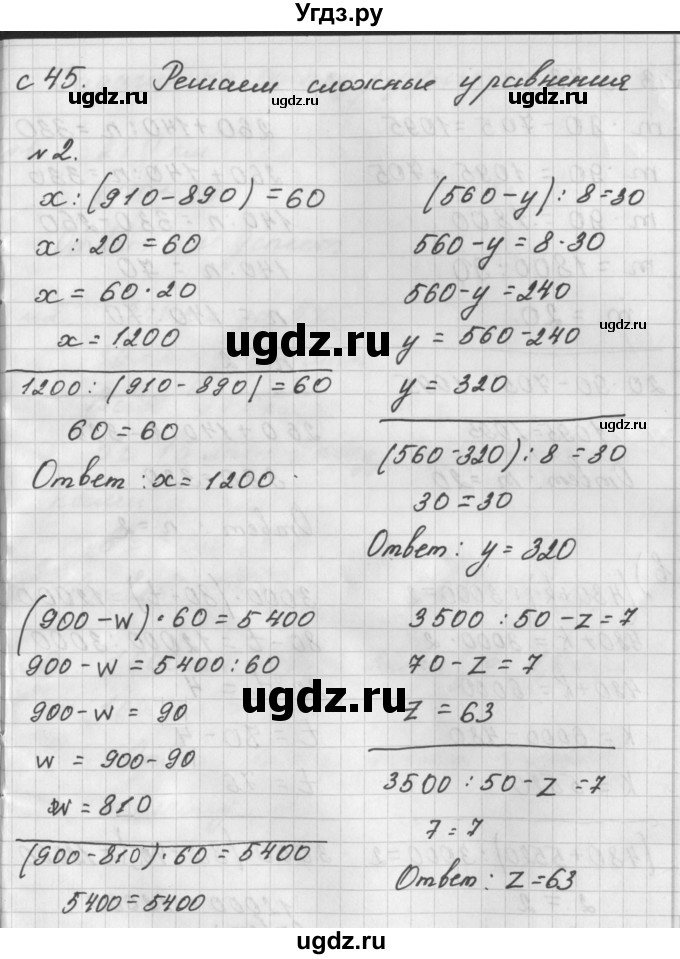 Угдз.ру
с 45. Решаем сложные уравнения
ugdz.ru
ugdz.ru
ugdz.ru
№2.
x : (910-890) = 60
x : 20 = 60
x = 60·20
x = 1200
1200 : (910-890) = 60
60 = 60
Ответ : x = 1200
(560-y) : 8 = 30
560-y = 8·30
560-y = 240
y = 560-240
y = 320
(560-320) : 8 = 30
30 = 30
Ответ : y = 320
ugdz.ru
ugdz.ru
ugdz.ru
ugdz.ru
ugdz.ru
(900-w)·60 = 5400
900-w = 5400:60
900-w = 90
w = 900-90
w = 810
(900-810)·60 = 5400
5400 = 5400
3500 : 50 - z = 7
70 - z = 7
z = 63
3500 : 50 - z = 7
7 = 7
Ответ : z = 63
ugdz.ru
ugdz.ru
ugdz.ru
ugdz.ru
ugdz.ru